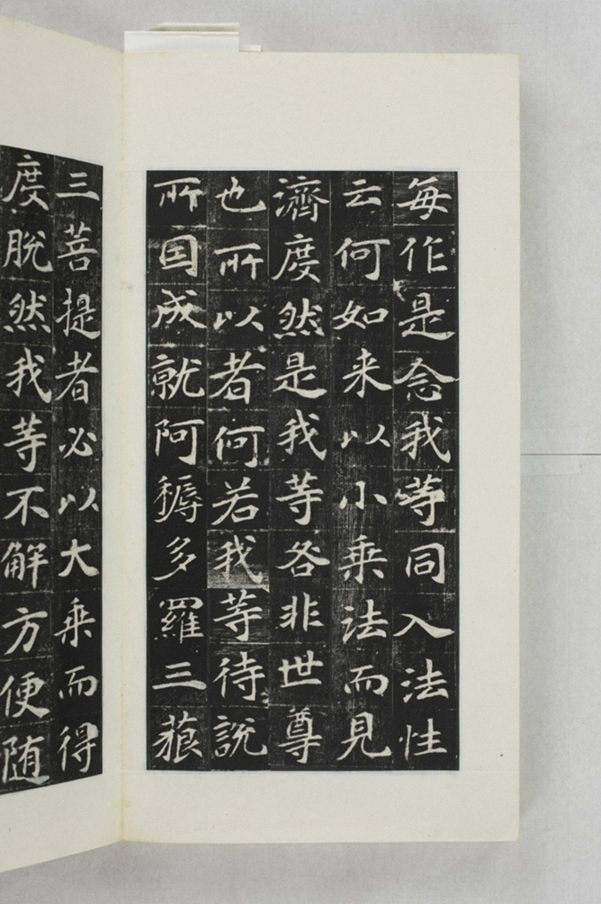 每作是念我等同入法性
云何如来以小乗法而見
濟度然是我等各非世尊
也所以者何若我等待說
所因成就阿耨多羅三藐
三菩提者必以大乗而得
度脱然我等不解方便随